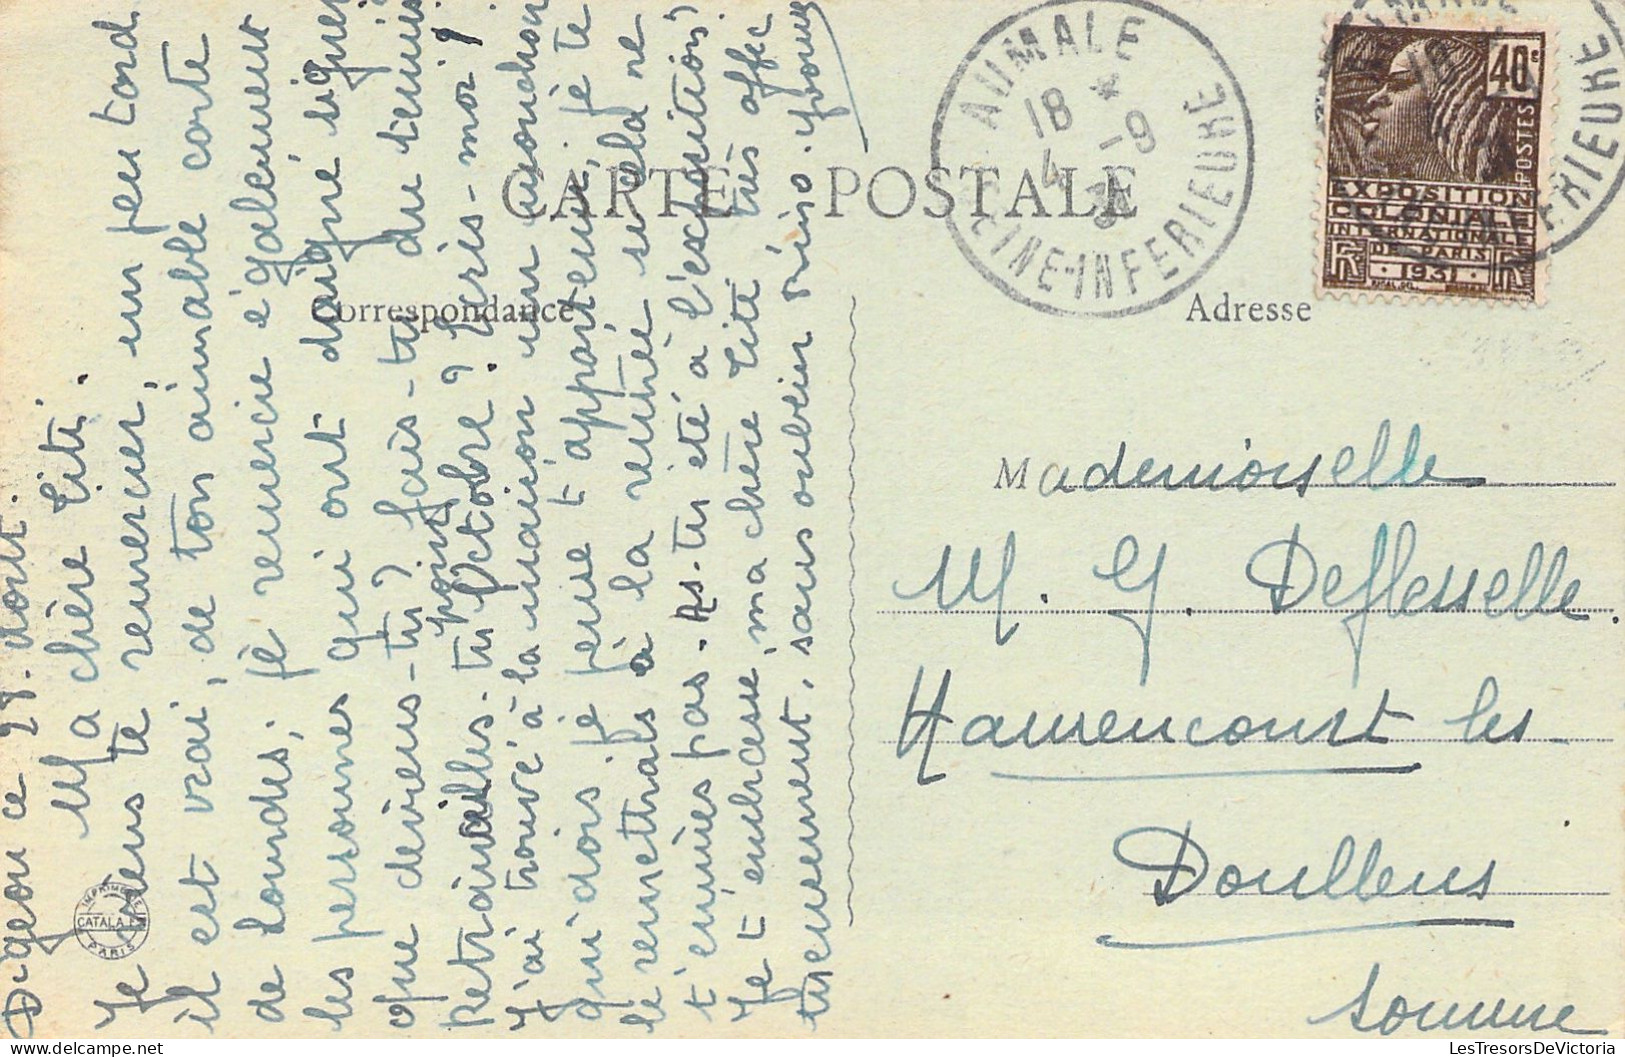 Digeon ce 28 Aout.
Ma chère Titi.
Je viens te remercier, un peu tard
il est vrai, de ton aimable carte
de Londres; je remercie également
les personnes qui ont daigné signer
Que deviens-tu? fais-tu du tennis
point
Retrouailles-tu Octobre? Paris-moi!
J'ai trouvé à la maison un mouchoir
qui dois je pense t'appartenir, je te
le remettrais à la rentrée si cela ne
t'ennuies pas. As-tu été à l'exposition?
Je t'embrasse ma chère Titi très affec
tueusement, sans oublier Yvonne
CARTE POSTALE
Correspondance
Adresse
AUMALE
18 *
4 -9
31
SEINE-INFERIEURE
40c
POSTES
EXPOSITION
COLONIALE
INTERNATIONALE
DE PARIS
·1931·
INFERIEURE
Mademoiselle
M. G. Deflesselle.
Haurencourt les
Doullens
Somme
IMPRIMERIE
CATALA FR
PARIS
LesTresorsDeVictoria.com